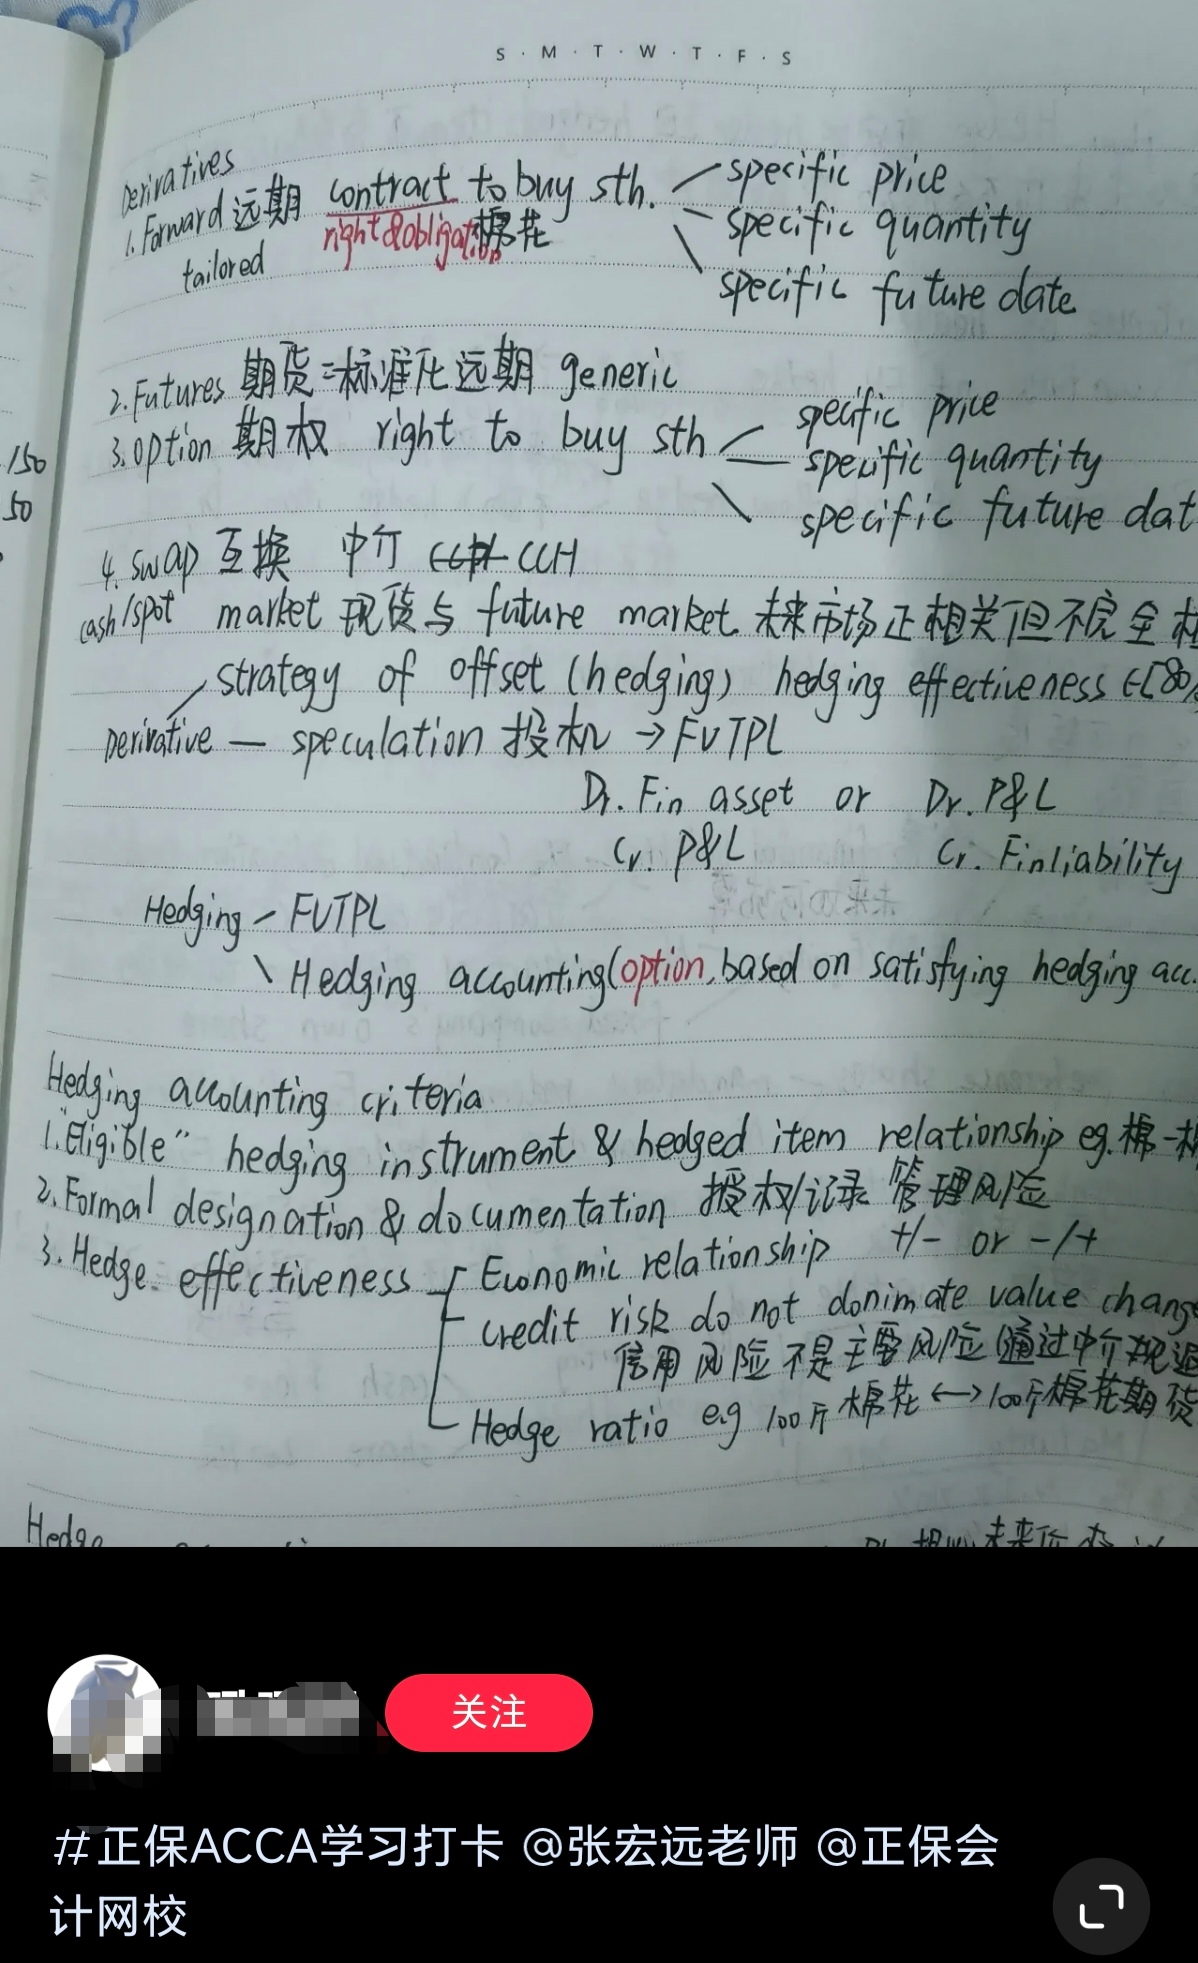 S · M · T · W · T · F · S
Derivatives
1. Forward 远期 contract to buy sth. specific price
right & obligation 棉花 specific quantity
tailored specific future date
2. Futures 期货=标准化远期 generic
3. option 期权 right to buy sth specific price
specific quantity
specific future dat
150
50
4. swap 互换 中介 CCH
cash/spot market 现货与 future market 未来市场正相关但不完全
strategy of offset (hedging) hedging effectiveness ∈[80%
Derivative — speculation 投机 → FVTPL
Dr. Fin asset or Dr. P&L
Cr. P&L Cr. Fin liability
Hedging — FVTPL
Hedging accounting (option, based on satisfying hedging acc.
Hedging accounting criteria
1. "Eligible" hedging instrument & hedged item relationship eg. 棉-棉
2. Formal designation & documentation 授权/记录 管理风险
3. Hedge. effectiveness Economic relationship +/- or -/+
credit risk do not donimate value change
信用风险不是主要风险(通过中介规避
Hedge ratio e.g 100斤棉花 ↔ 100斤棉花期货
Hedge
关注
#正保ACCA学习打卡 @张宏远老师 @正保会
计网校